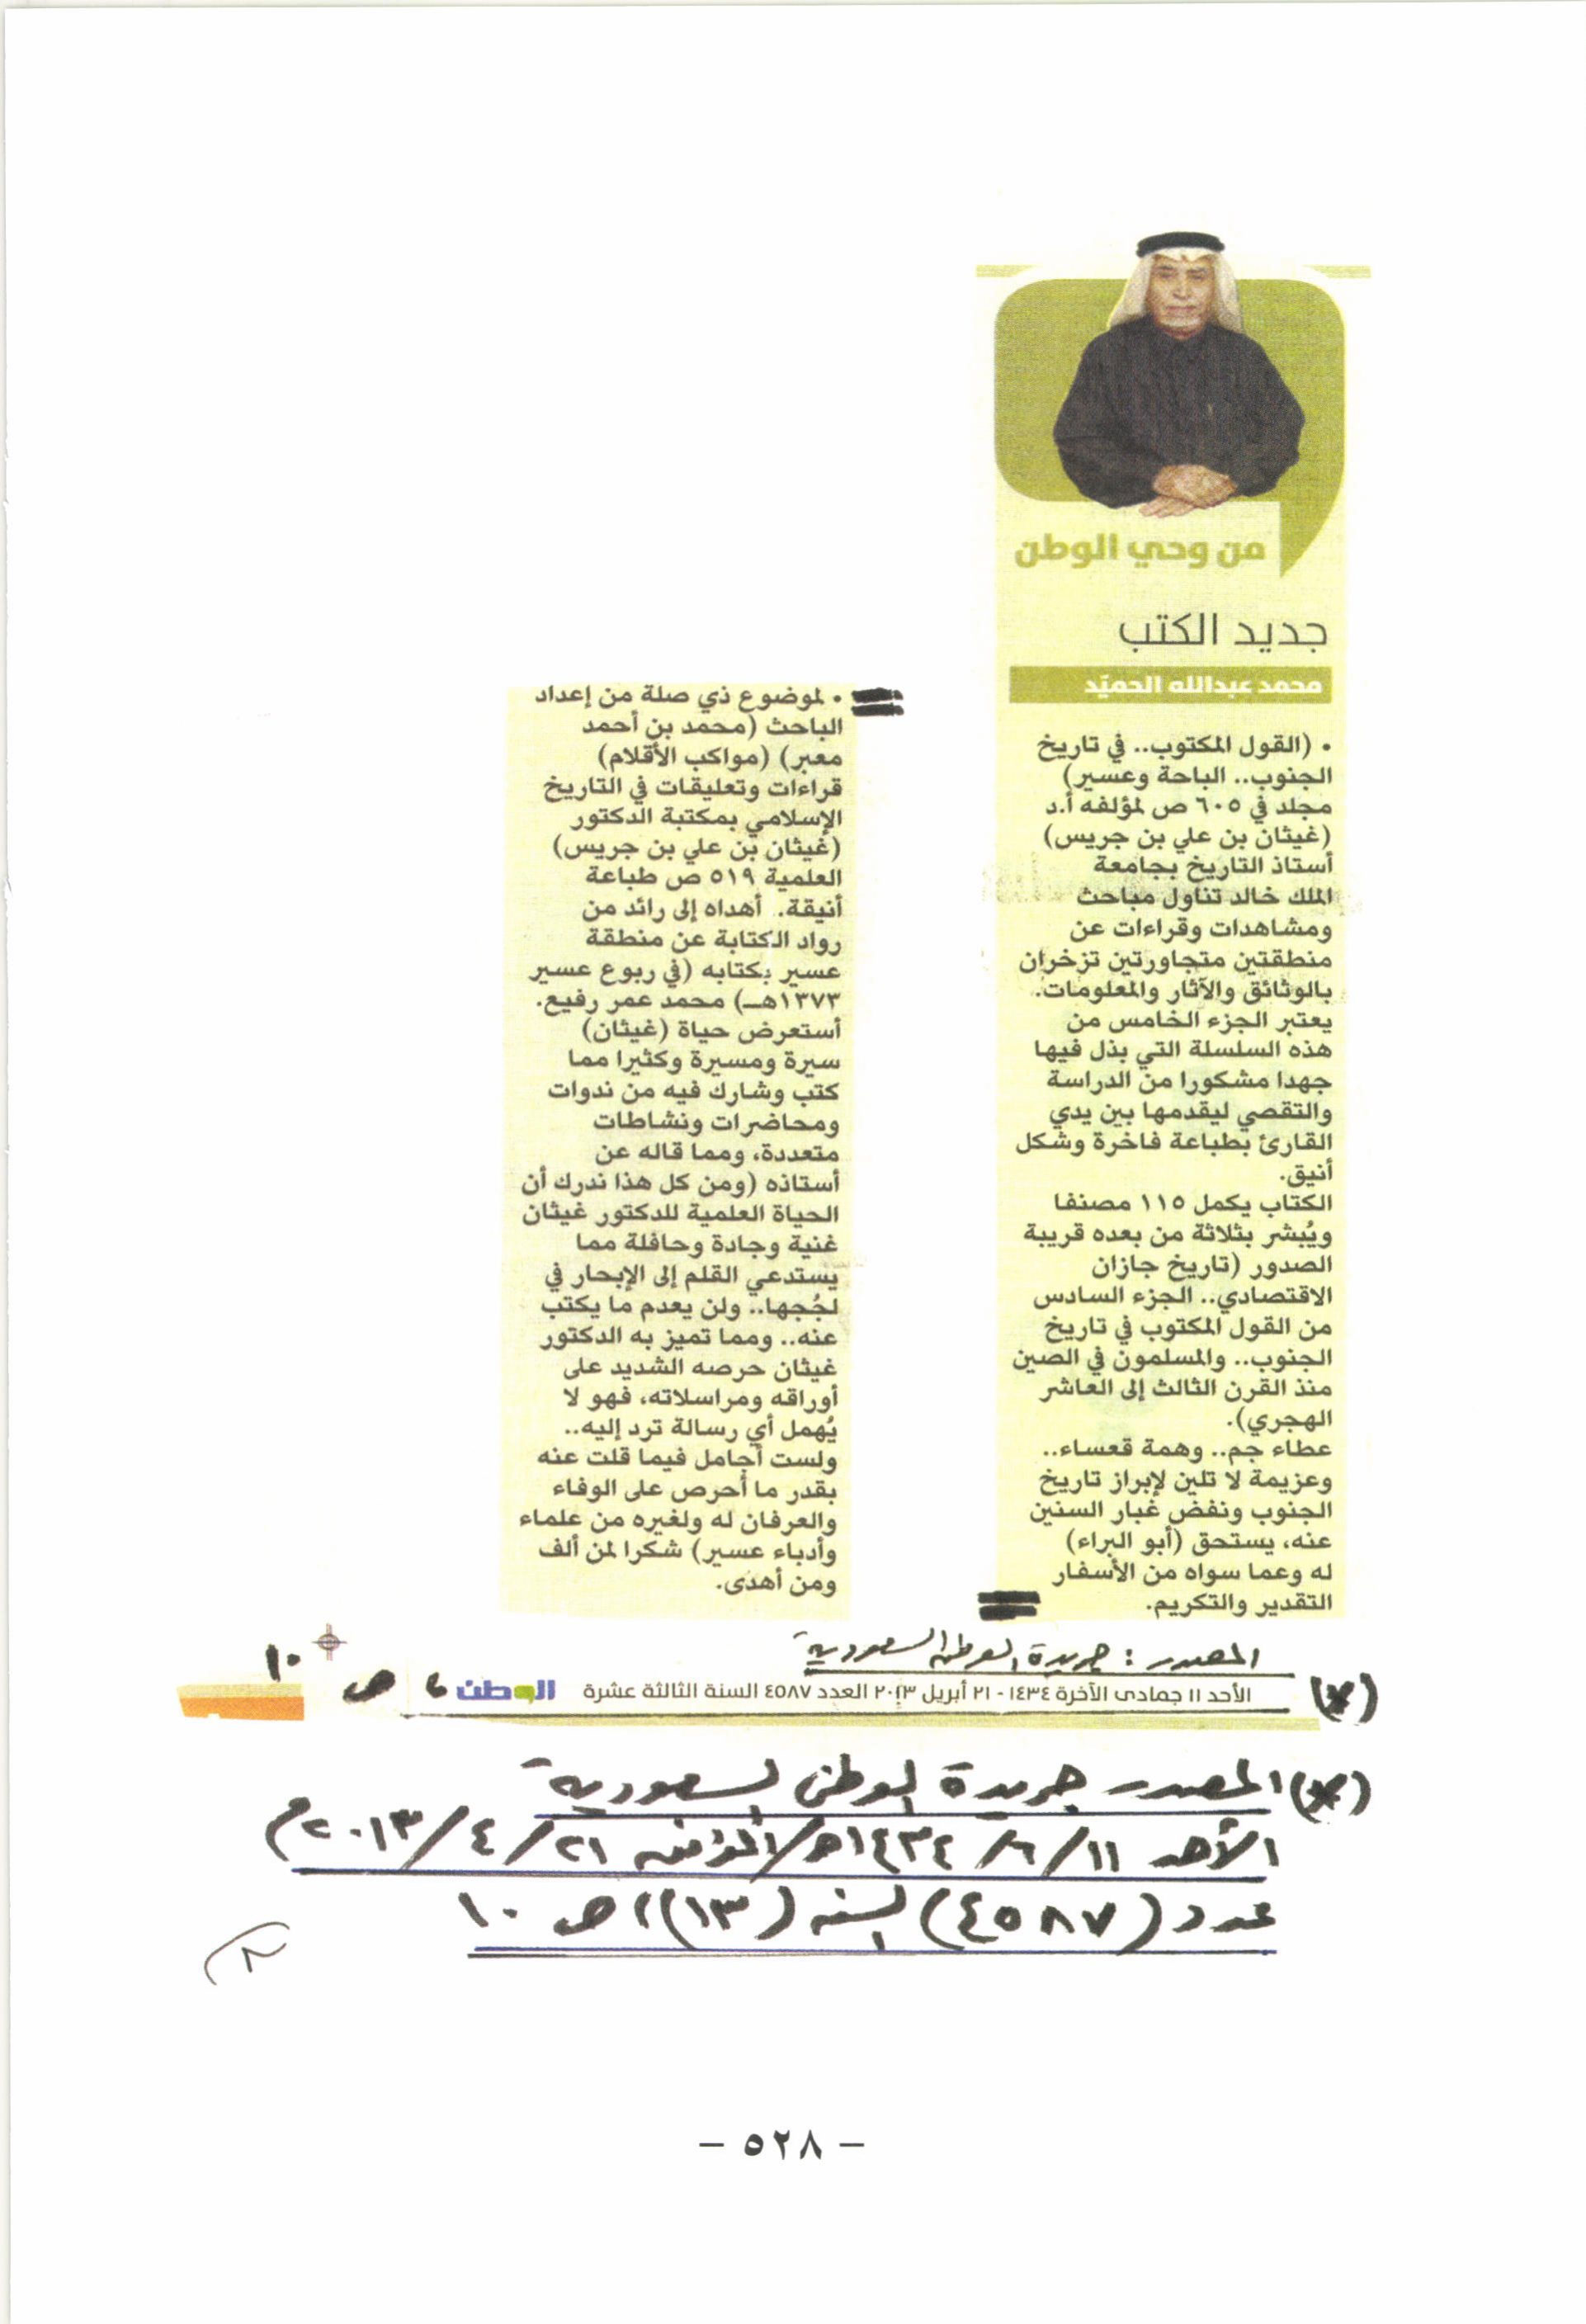 من وحي الوطن
جديد الكتب
محمد عبدالله الحميّد
• (القول المكتوب.. في تاريخ
الجنوب.. الباحة وعسير)
مجلد في ٦٠٥ ص لمؤلفه أ.د
(غيثان بن علي بن جريس)
أستاذ التاريخ بجامعة
الملك خالد تناول مباحث
ومشاهدات وقراءات عن
منطقتين متجاورتين تزخران
بالوثائق والآثار والمعلومات.
يعتبر الجزء الخامس من
هذه السلسلة التي بذل فيها
جهدا مشكورا من الدراسة
والتقصي ليقدمها بين يدي
القارئ بطباعة فاخرة وشكل
أنيق.
الكتاب يكمل ١١٥ مصنفا
ويُبشر بثلاثة من بعده قريبة
الصدور (تاريخ جازان
الاقتصادي.. الجزء السادس
من القول المكتوب في تاريخ
الجنوب.. والمسلمون في الصين
منذ القرن الثالث إلى العاشر
الهجري).
عطاء جم.. وهمة قعساء..
وعزيمة لا تلين لإبراز تاريخ
الجنوب ونفض غبار السنين
عنه، يستحق (أبو البراء)
له وعما سواه من الأسفار
التقدير والتكريم.
• لموضوع ذي صلة من إعداد
الباحث (محمد بن أحمد
معبر) (مواكب الأقلام)
قراءات وتعليقات في التاريخ
الإسلامي بمكتبة الدكتور
(غيثان بن علي بن جريس)
العلمية ٥١٩ ص طباعة
أنيقة. أهداه إلى رائد من
رواد الكتابة عن منطقة
عسير بكتابه (في ربوع عسير
١٣٧٣هـ) محمد عمر رفيع.
أستعرض حياة (غيثان)
سيرة ومسيرة وكثيرا مما
كتب وشارك فيه من ندوات
ومحاضرات ونشاطات
متعددة، ومما قاله عن
أستاذه (ومن كل هذا ندرك أن
الحياة العلمية للدكتور غيثان
غنية وجادة وحافلة مما
يستدعي القلم إلى الإبحار في
لجُجها.. ولن يعدم ما يكتب
عنه.. ومما تميز به الدكتور
غيثان حرصه الشديد على
أوراقه ومراسلاته، فهو لا
يُهمل أي رسالة ترد إليه..
ولست أجامل فيما قلت عنه
بقدر ما أحرص على الوفاء
والعرفان له ولغيره من علماء
وأدباء عسير) شكرا لمن ألف
ومن أهدى.
المصدر : جريدة الوطن السعودية
(*) الأحد ١١ جمادى الآخرة ١٤٣٤ - ٢١ أبريل ٢٠١٣ العدد ٤٥٨٧ السنة الثالثة عشرة الوطن ، ص ١٠
(*) المصدر جريدة الوطن السعودية
الأحد ١١/٦/١٤٣٤هـ/الموافق ٢١/٤/٢٠١٣م
عدد (٤٥٨٧) السنة (١٣)، ص ١٠
– ٥٢٨ –